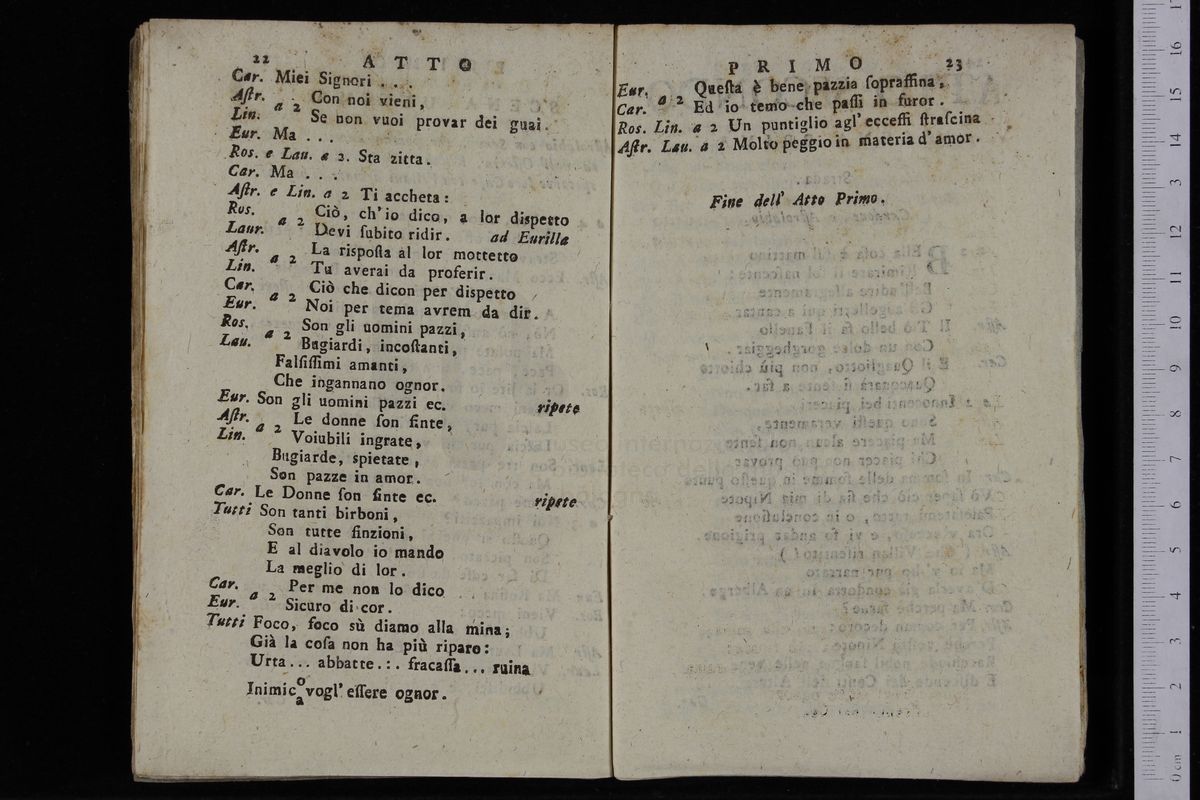 22 ATTO
Car. Miei Signori ....
Aſtr. a 2 Con noi vieni,
Lin. Se non vuoi provar dei guai.
Eur. Ma ...
Ros. e Lau. a 2. Sta zitta.
Car. Ma ...
Aſtr. e Lin. a 2 Ti accheta:
Ros. a 2 Ciò, ch'io dico, a lor dispetto
Laur. Devi ſubito ridir. ad Eurilla
Aſtr. a 2 La riſpoſta al lor mottetto
Lin. Tu averai da proferir.
Car. a 2 Ciò che dicon per dispetto
Eur. Noi per tema avrem da dir.
Ros. a 2 Son gli uomini pazzi,
Lau. Bugiardi, incoſtanti,
Falſiſſimi amanti,
Che ingannano ognor.
Eur. Son gli uomini pazzi ec. ripete
Aſtr. a 2 Le donne ſon finte,
Lin. Volubili ingrate,
Bugiarde, spietate,
Son pazze in amor.
Car. Le Donne ſon finte ec. ripete
Tutti Son tanti birboni,
Son tutte finzioni,
E al diavolo io mando
La meglio di lor.
Car. a 2 Per me non lo dico
Eur. Sicuro di cor.
Tutti Foco, foco sù diamo alla mina;
Già la coſa non ha più riparo:
Urta... abbatte... fracaſſa... ruina
Inimic o a vogl' eſſere ognor.
PRIMO 23
Eur. a 2 Queſta è bene pazzia ſopraffina,
Car. Ed io temo che paſſi in furor.
Ros. Lin. a 2 Un puntiglio agl' ecceſſi ſtraſcina
Aſtr. Lau. a 2 Molto peggio in materia d'amor.
Fine dell' Atto Primo.